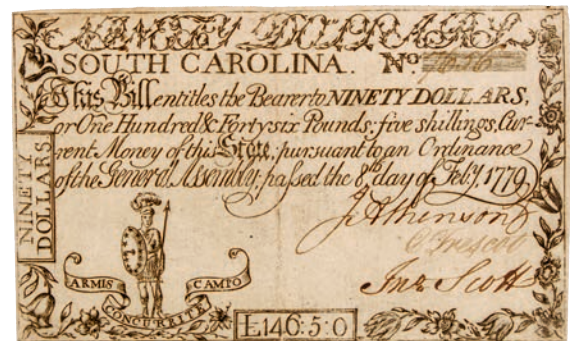 NINETY DOLLARS
SOUTH CAROLINA. No.
This Bill entitles the Bearer to NINETY DOLLARS,
or One Hundred & Forty six Pounds, five shillings, Cur-
rent Money of this State, pursuant to an Ordinance
of the General Assembly, passed the 8th day of Feby. 1779
NINETY
DOLLARS
J Atkinson
Jno Scott
ARMIS CAMPO
CONCURRITE
£146:5:0